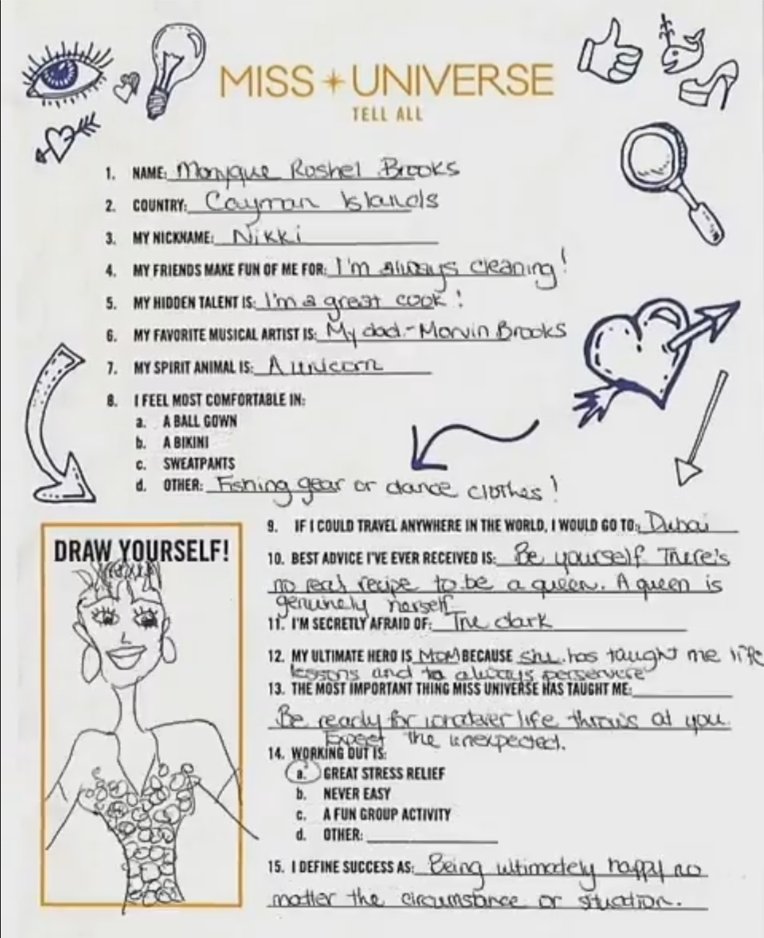 MISS UNIVERSE
TELL ALL
1. NAME: Monyque Roshel Brooks
2. COUNTRY: Cayman Islands
3. MY NICKNAME: Nikki
4. MY FRIENDS MAKE FUN OF ME FOR: I'm always cleaning!
5. MY HIDDEN TALENT IS: I'm a great cook!
6. MY FAVORITE MUSICAL ARTIST IS: My dad - Marvin Brooks
7. MY SPIRIT ANIMAL IS: A unicorn
8. I FEEL MOST COMFORTABLE IN:
a. A BALL GOWN
b. A BIKINI
c. SWEATPANTS
d. OTHER: Fishing gear or dance clothes!
DRAW YOURSELF!
9. IF I COULD TRAVEL ANYWHERE IN THE WORLD, I WOULD GO TO: Dubai
10. BEST ADVICE I'VE EVER RECEIVED IS: Be yourself. There's
no real recipe to be a queen. A queen is
genuinely herself
11. I'M SECRETLY AFRAID OF: The dark
12. MY ULTIMATE HERO IS MOM BECAUSE she has taught me life
lessons and to always perservere
13. THE MOST IMPORTANT THING MISS UNIVERSE HAS TAUGHT ME:
Be ready for whatever life throws at you.
Expect the unexpected.
14. WORKING OUT IS:
a. GREAT STRESS RELIEF
b. NEVER EASY
c. A FUN GROUP ACTIVITY
d. OTHER:
15. I DEFINE SUCCESS AS: Being ultimately happy no
matter the circumstance or situation.